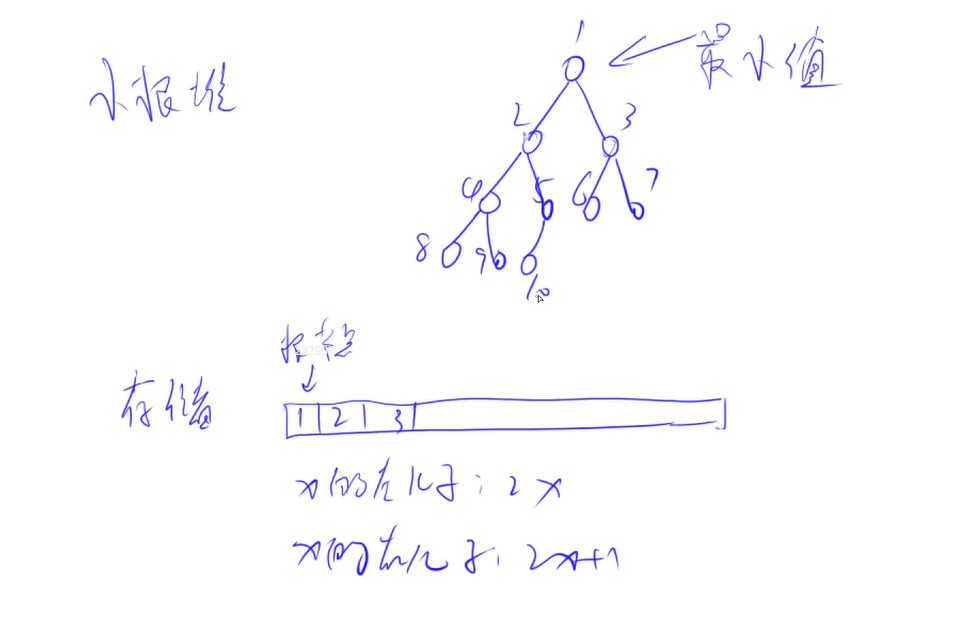 小根堆
最小值
1
2
3
4
5
6
7
8
9
10
根节点
存储
1 2 3
x的左儿子：2x
x的右儿子：2x+1